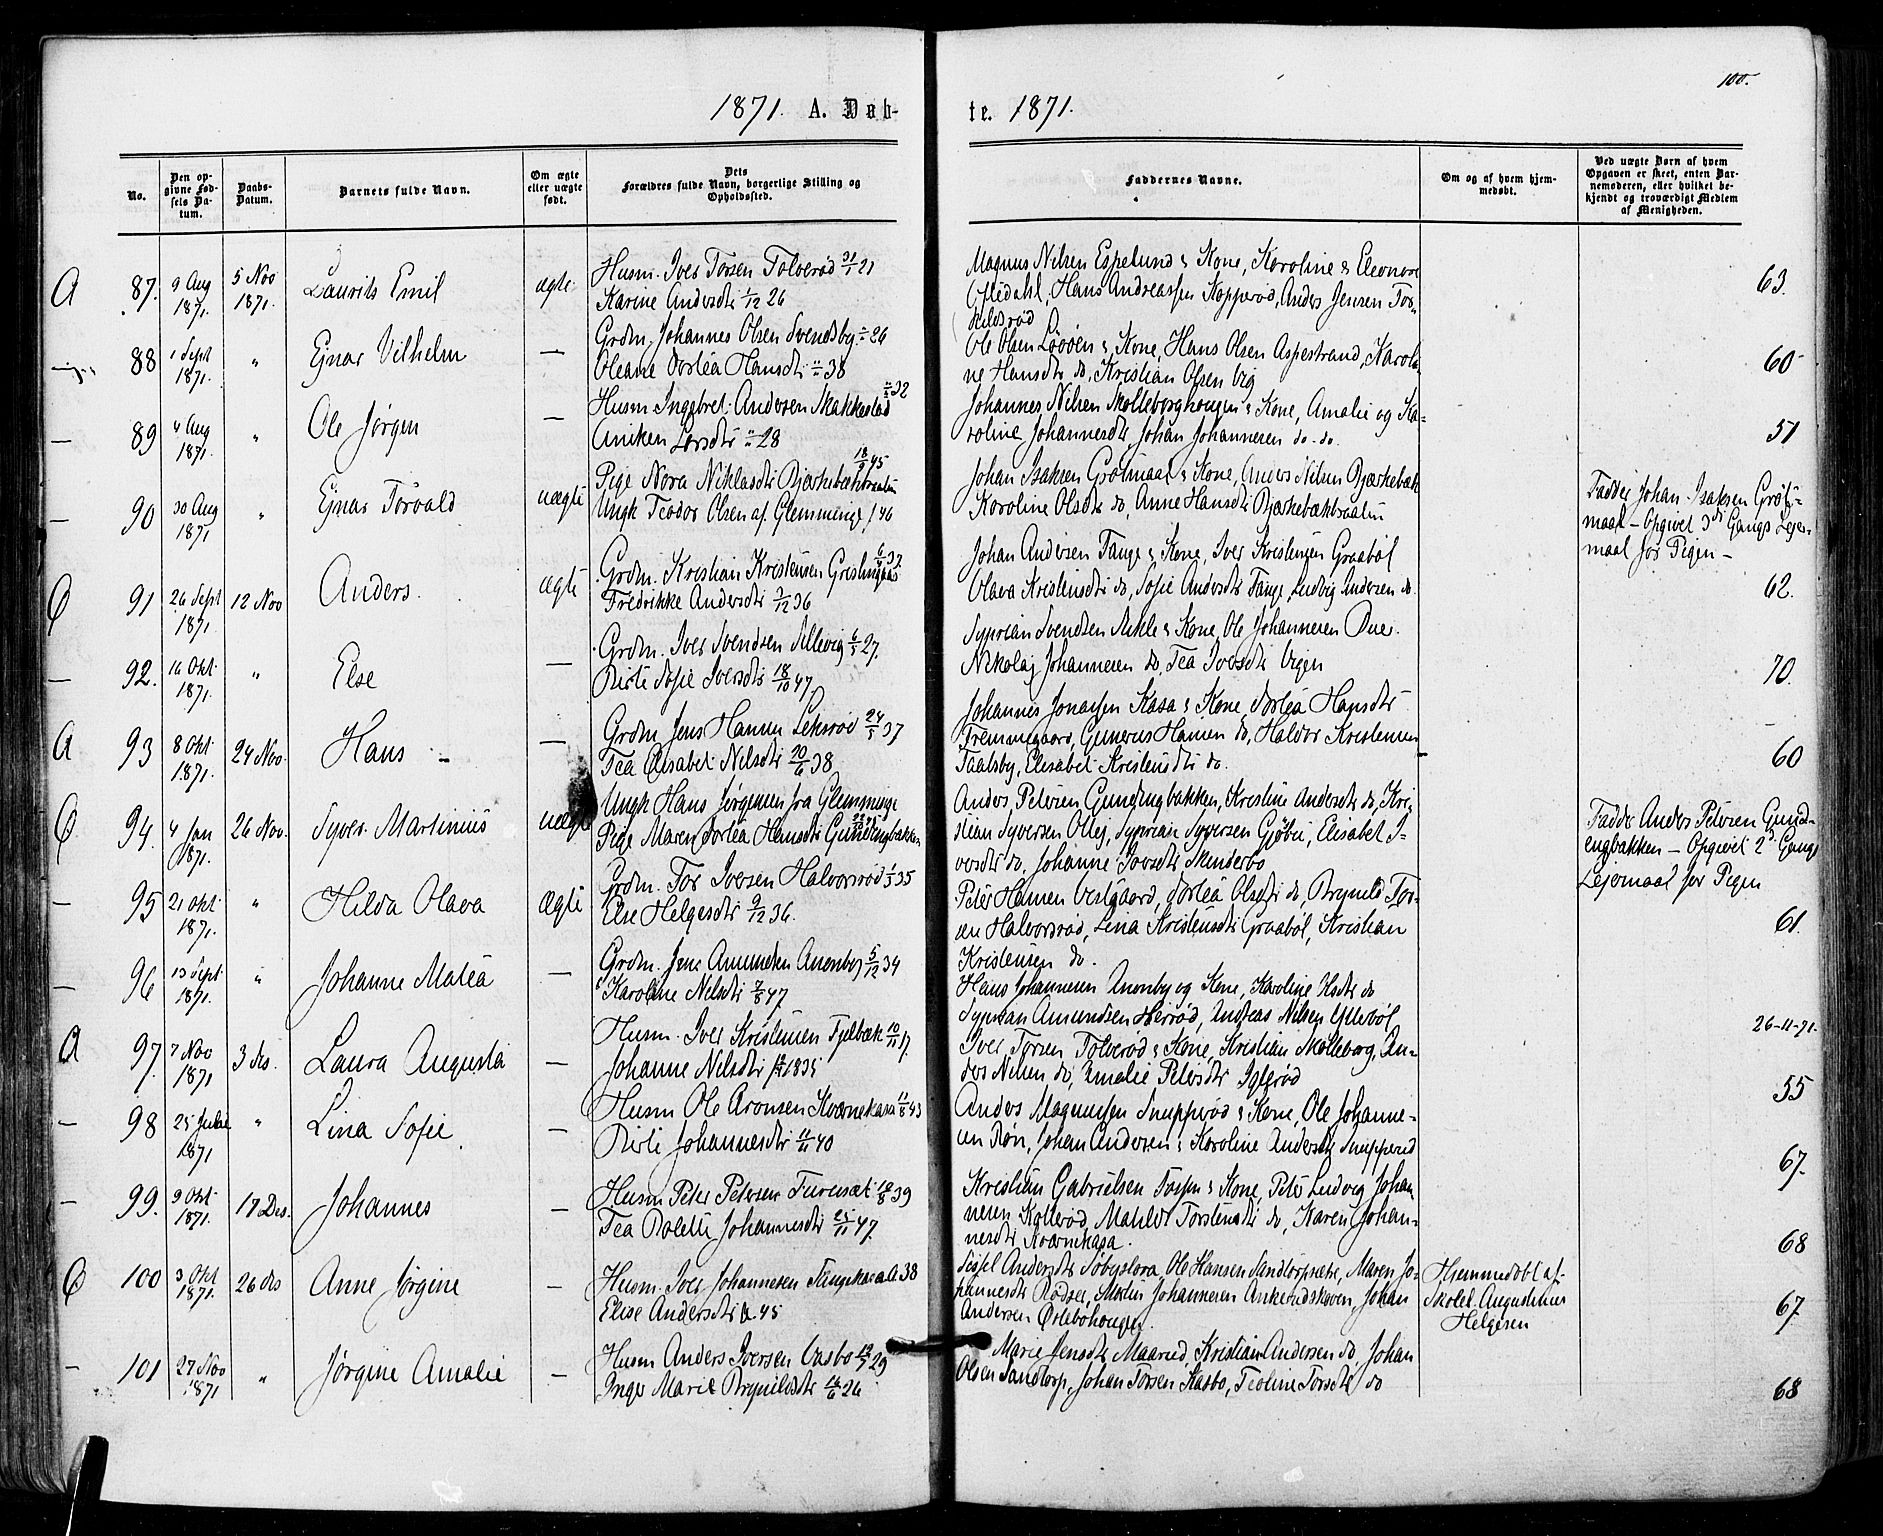 100.
1871. A. Døb-
te. 1871.
No.
Den op-
givne Fød-
sels Da-
tum.
Daabs-
Datum.
Barnets fulde Navn.
Om ægte
eller uægte
født.
Dets
Forældres fulde Navn, borgerlige Stilling og
Opholdssted.
Faddernes Navne.
Om og af hvem hjem-
medøbt.
Ved uægte Børn af hvem
Opgaven er skeet, enten Bar-
nemoderen, eller hvilket be-
kjendt og troværdigt Medlem
af Menigheden.
A 87. 9 Aug 1871. 5 Nov 1871. Laurits Emil ægte
Husm. Iver Torsen Tolverød 31/1 21
Karine Andersdtr 1/12 26
Magnus Nilsen Espelund & Kone, Karoline & Eleonore
Hans Andreassen Kopperød, Anders Jensen Tor-
kildsrød
63.
88 1 Sept 1871. " Ejnar Vilhelm —
Grdm. Johannes Olsen Svendsby 26
Oleane Dortea Hansdtr 38
Ole Olsen & Kone, Hans Olsen Aspestrand, Karoli-
ne Hansdtr do, Kristian Olsen Vig
60
— 89 4 Aug 1871. " Ole Jørgen —
Husm. Ingebret Andersen Skakkestad 32
Aniken Larsdtr 28
Johannes Nilsen Skolleborghougen & Kone, Amalie og Ka-
roline Johannesdtr, Johan Johannesen do - do.
51
— 90 30 Aug 1871 " Ejnar Torvald uægte
Pige Nora Niklasdtr Bjærkebækbraatin 18/9 45
Ungk Teodor Olsen af Glemminge / 46
Johan Isaksen Grøtmaal & Kone, Anders Nilsen Bjærkebæk
Karoline Olsdtr do, Anne Hansdtr Bjærkebækbraatin
Fadder Johan Isaksen Grøt-
maal — Opgivet 3die Gangs Leier-
maal for Pigen —
91 26 Sept 1871. 12 Nov Anders. ægte
Grdm. Kristian Kristensen 37
Fredrikke Andersdtr 3/12 36
Johan Andersen Tange & Kone, Iver Kristensen Graabøl
Olava Kristensdtr do, Sofie Andersdtr Tange, Ludvig Andersen do.
62.
— 92. 16 Okt 1871. " Else —
Grdm. Iver Svendsen Sillevig 6/5 27.
Birte Sofie Iversdtr 18/10 47.
Syprian Svendsen & Kone, Ole Johannesen
Nikolaj Johannesen do, Tea Iversdtr Vigen
70.
A 93 8 Okt 1871. 24 Nov. Hans —
Grdm. Jens Hansen 24/5 37
Tea Elisabet Nilsdtr 20/6 38.
Johannes Jonassen Kasa & Kone, Dortea Hansdtr
Gunerus Hansen do, Haldor Kristensen
Taalsby, Elisabet Kristensdtr do.
60
94. 4 Jan 1871. 26 Nov. Syver Martinius uægte
Ungk Hans Jørgensen fra Glemminge
Pige Maren Dortea Hansdtr Gundengbakken
Anders Petersen Gundengbakken, Kristine Andersdtr do, Kri-
stian Syversen Olej, Syprian Syversen Gjøbu, Elisabet I-
versdtr do, Johanne Iversdtr Skinderbo
Fadder Anders Petersen Gund-
engbakken — Opgivet 2d. Gangs
Lejermaal for Pigen
— 95 21 Okt 1871. " Hilda Olava Ægte
Grdm. Tor Iversen Halvorsrød 1/5 35
Else Helgesdtr 9/12 36.
Peter Hansen Vestgaard, Dortea Olsdtr do, Brynild Tor-
sen Halvorsrød, Lina Kristensdtr Graabøl, Kristian
Kristensen do.
61.
— 96 13 Sept 1871. " Johanne Matea —
Grdm. Jens Amundsen Anonby 5/12 34
Karoline Nilsdtr 7/8 47.
Hans Johannesen Anonby og Kone, Karoline do
Syprian Amundsen Herrød, Andreas Nilsen
26-11-71.
A 97. 7 Nov 1871 3 des. Laura Augusta —
Husm. Iver Kristensen Fjelbæk 10/11 17.
Johanne Nilsdtr 1835
Iver Torsen Tolverød & Kone, Kristian Skolleborg, An-
ders Nilsen do, Amalie Petersdtr Iglerød
55
— 98 25 Julie 1871 " Lina Sofie —
Husm Ole Aronsen Kværnekasa 11/8 43
Birte Johannesdtr 11/11 40
Anders Magnussen Snupperød & Kone, Ole Johanne-
sen Røn, Johan Andersen & Karoline Andersdtr Snupperød
67.
— 99. 9 Okt 1871. 17 Des. Johannes —
Husm Peter Petersen 10/8 39
Tea Bolette Johannesdtr 25/11 47.
Kristian Gabrielsen & Kone, Peter Ludvig Johan
nesen Kollerød, Matilde Torstensdtr do, Karen Johan-
nesdtr Kværnekasa.
68
100 3 Okt 1871. 26 des Anne Jørgine —
Husm. Iver Johannesen Tangekasa 38
Elise Andersdtr 45
Sissel Andersdtr, Ole Hansen, Maren Jo-
hannesdtr, Martin Johannesen, Johan
Andersen
Hjemmedøbt af
Skolel. Augustinius
Helgesen
67.
— 101 27 Nov 1871 " Jørgine Amalie —
Husm Anders Iversen 29
Inger Marie Brynildsdtr 14/6 26
Marie Jensdtr Maarud, Kristian Andersen do, Johan
Olsen Sandtorp, Johan Torsen Kasbo, Teoline Torsdtr do
68